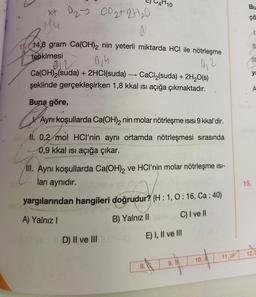 E) C4H10
x+ O2 → CO2 + 2H2O
11. 14,8 gram Ca(OH)2 nin yeterli miktarda HCl ile nötrleşme
tepkimesi
0,2 0,4 0,2
Ca(OH)2(suda) + 2HCl(suda) → CaCl2(suda) + 2H2O(s)
şeklinde gerçekleşirken 1,8 kkal ısı açığa çıkmaktadır.
Buna göre,
I. Aynı koşullarda Ca(OH)2 nin molar nötrleşme ısısı 9 kkal'dir.
II. 0,2 mol HCl'nin aynı ortamda nötrleşmesi sırasında
0,9 kkal ısı açığa çıkar.
III. Aynı koşullarda Ca(OH)2 ve HCl'nin molar nötrleşme ısı-
ları aynıdır.
yargılarından hangileri doğrudur? (H : 1, O : 16, Ca : 40)
A) Yalnız I B) Yalnız II C) I ve II
D) II ve III E) I, II ve III
8. 9. 10. 11. 12.
Bu
15.